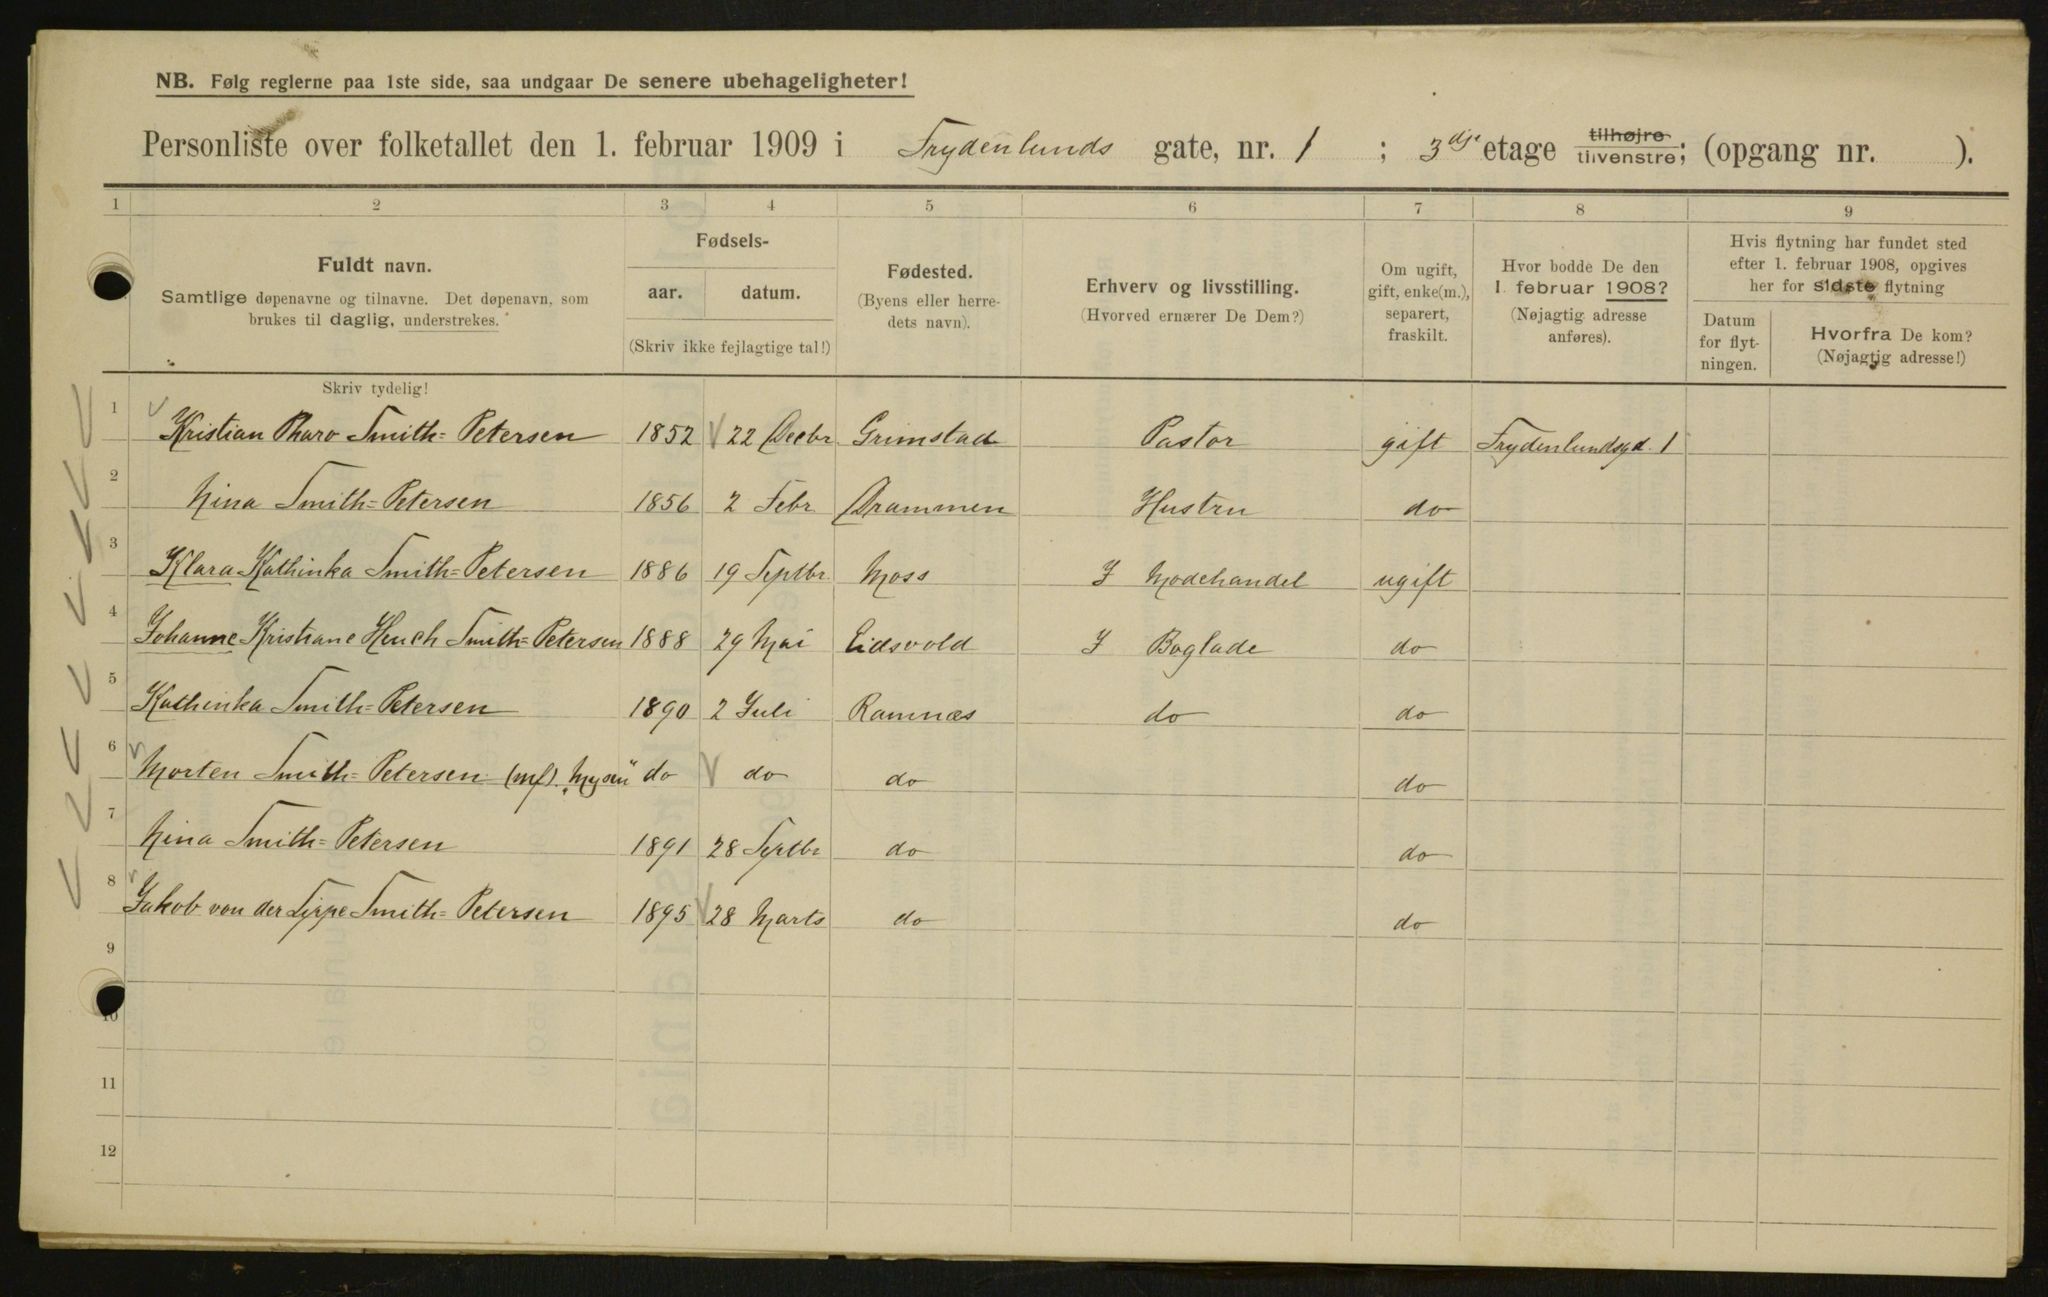 NB. Følg reglerne paa 1ste side, saa undgaar De senere ubehageligheter!
Personliste over folketallet den 1. februar 1909 i Frydenlunds gate, nr. 1 ; 3dje etage tilhøjre tilvenstre; (opgang nr. ).
1 2 3 4 5 6 7 8 9
Fuldt navn.
Samtlige døpenavne og tilnavne. Det døpenavn, som
brukes til daglig, understrekes.
Skriv tydelig!
Fødsels-
aar. datum.
(Skriv ikke fejlagtige tal!)
Fødested.
(Byens eller herre-
dets navn).
Erhverv og livsstilling.
(Hvorved ernærer De Dem?)
Om ugift,
gift, enke(m.),
separert,
fraskilt.
Hvor bodde De den
1. februar 1908?
(Nøjagtig adresse
anføres).
Hvis flytning har fundet sted
efter 1. februar 1908, opgives
her for sidste flytning
Datum
for flyt-
ningen.
Hvorfra De kom?
(Nøjagtig adresse!)
1 Kristian Pharo Smith=Petersen 1852 22 Decbr Grimstad Pastor gift Frydenlundsgd. 1
2 Nina Smith=Petersen 1856 2 Febr Drammen Hustru do
3 Klara Kathinka Smith=Petersen 1886 19 Septbr. Moss I Modehandel ugift
4 Johanne Kristiane Heuch Smith=Petersen 1888 29 Mai Eidsvold I Boglade do
5 Kathinka Smith=Petersen 1890 2 Juli Ramnæs do do
6 Morten Smith=Petersen (mf). „Mysen" do do do do
7 Nina Smith=Petersen 1891 28 Septbr do do
8 Jakob von der Lippe Smith=Petersen 1895 28 Marts do do
9
10
11
12